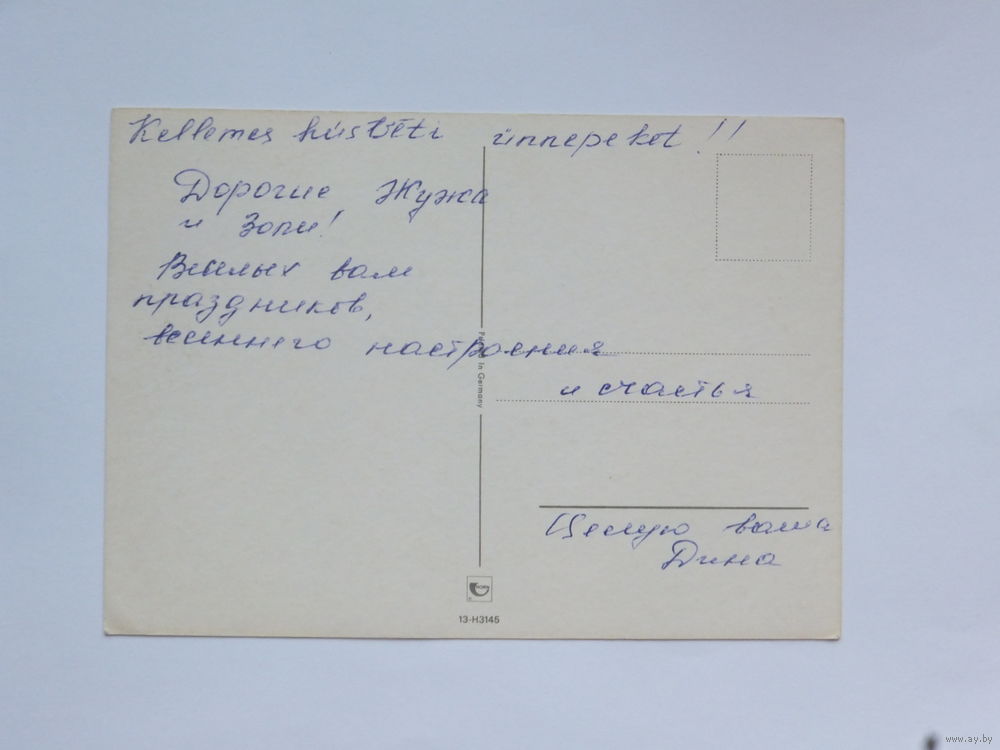 Kellemes húsvéti ünnepeket!!
Дорогие Жужа
и Зопи!
Веселых вам
праздников,
весеннего настроения
и счастья
Целую ваша
Дина
Printed in Germany
HORN
13-H3145
www.ay.by